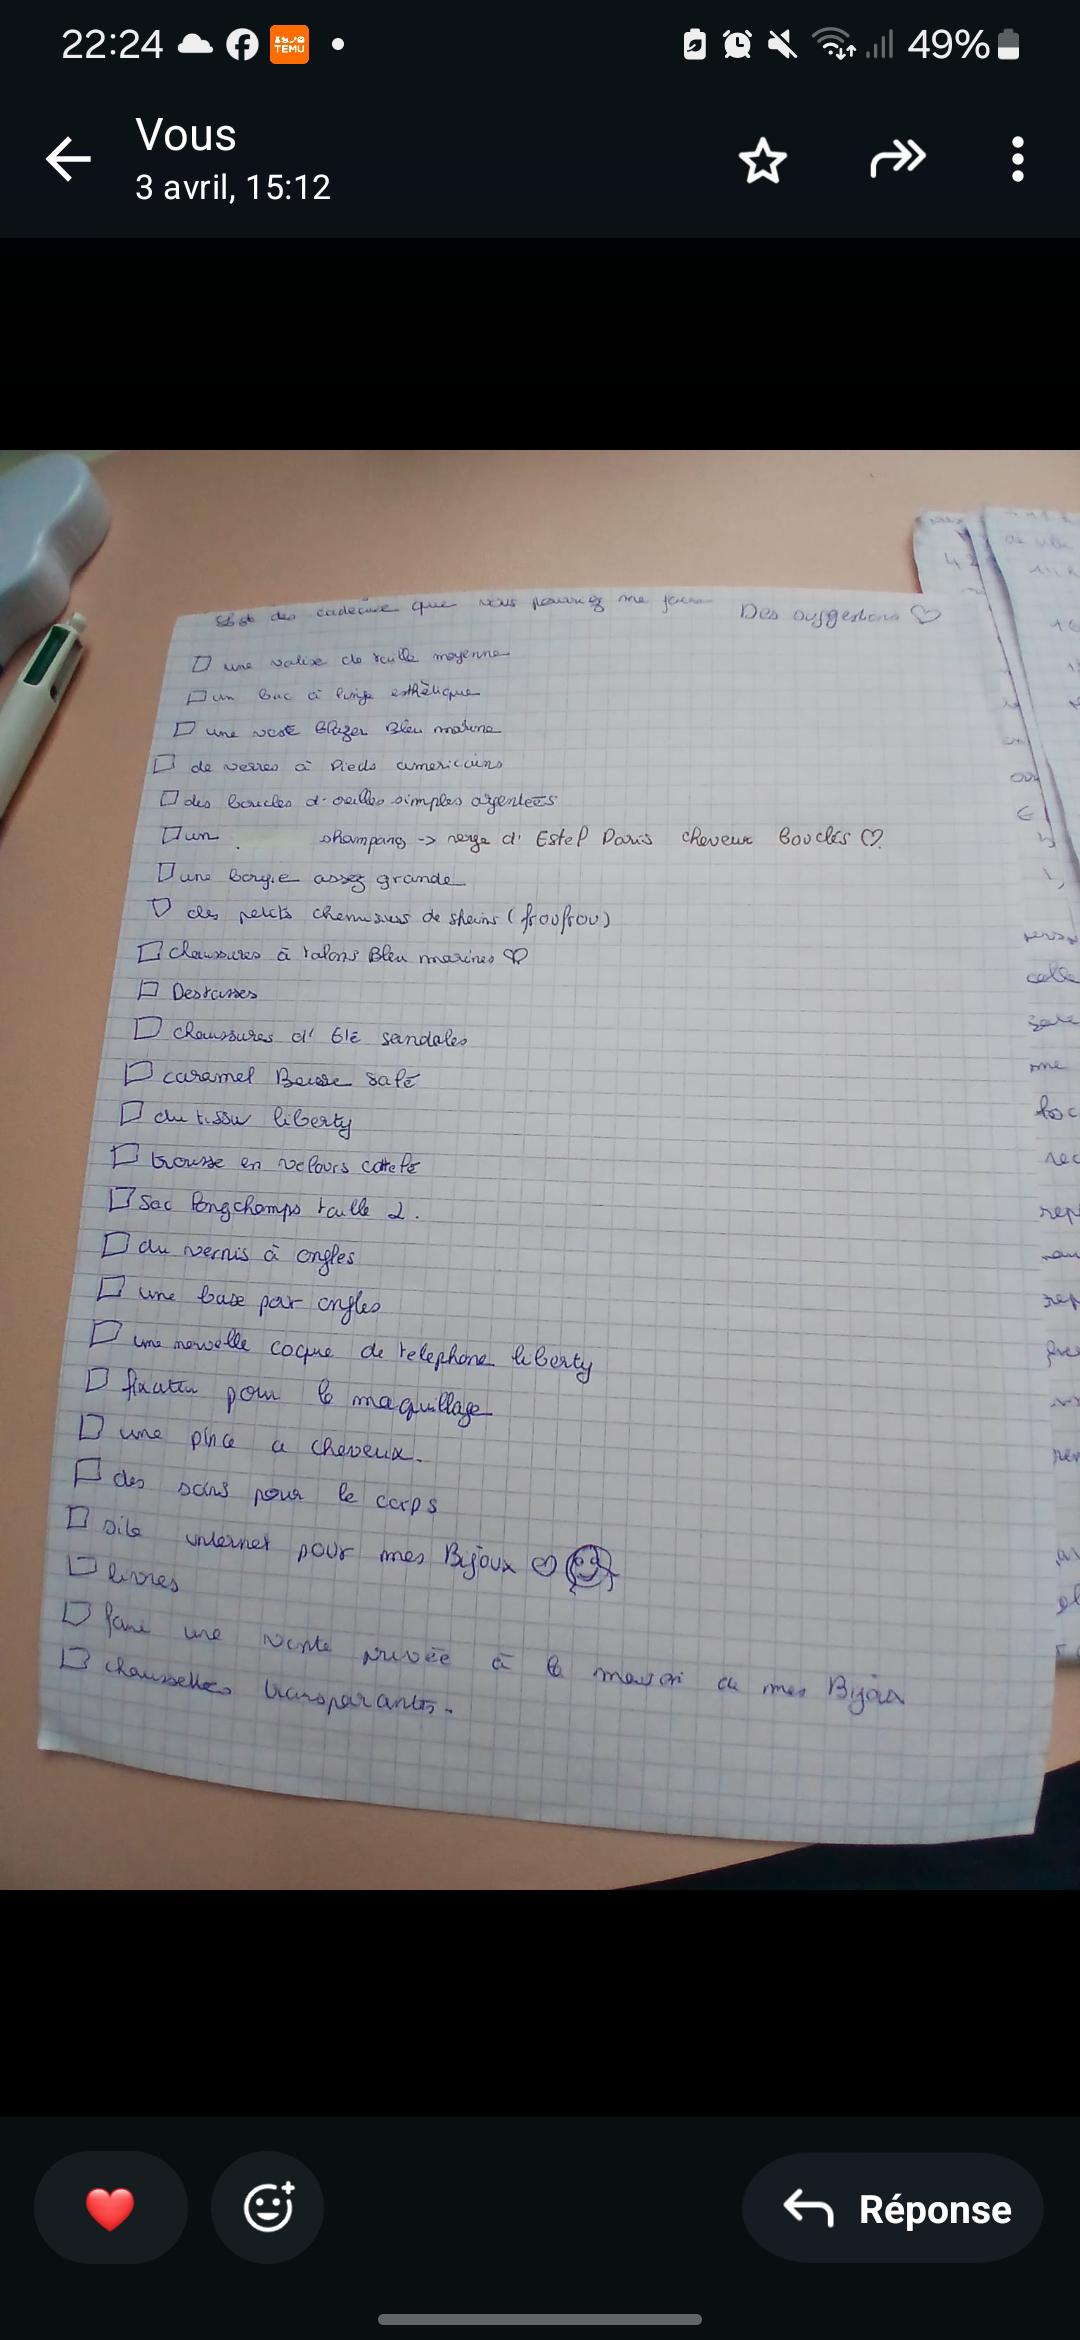 22:24
TEMU
49%
Vous
3 avril, 15:12
des cadeaux que vous pourriez me faire Des suggestions ♡
une valise de taille moyenne
un bac à linge esthétique
une veste Blazer Bleu marine
de verres à Pieds americains
des boucles d'oreilles simples argentées
un shampoing -> d' Estel Paris cheveux Bouclés ♡.
une bougie assez grande
des petits chemisiers de sheins (froufrou)
chaussures à talons Bleu marines ♡
Des tasses
chaussures d' Eté sandales
caramel Beurre salé
du tissu liberty
trousse en velours cotelé
Sac longchamps taille 2.
du vernis à ongles
une base pour ongles
une nouvelle coque de telephone liberty
fixateur pour le maquillage
une pince a cheveux.
des soins pour le corps
site internet pour mes Bijoux ♡
livres
faire une vente privée à la maison de mes Bijoux
transparantes.
Réponse